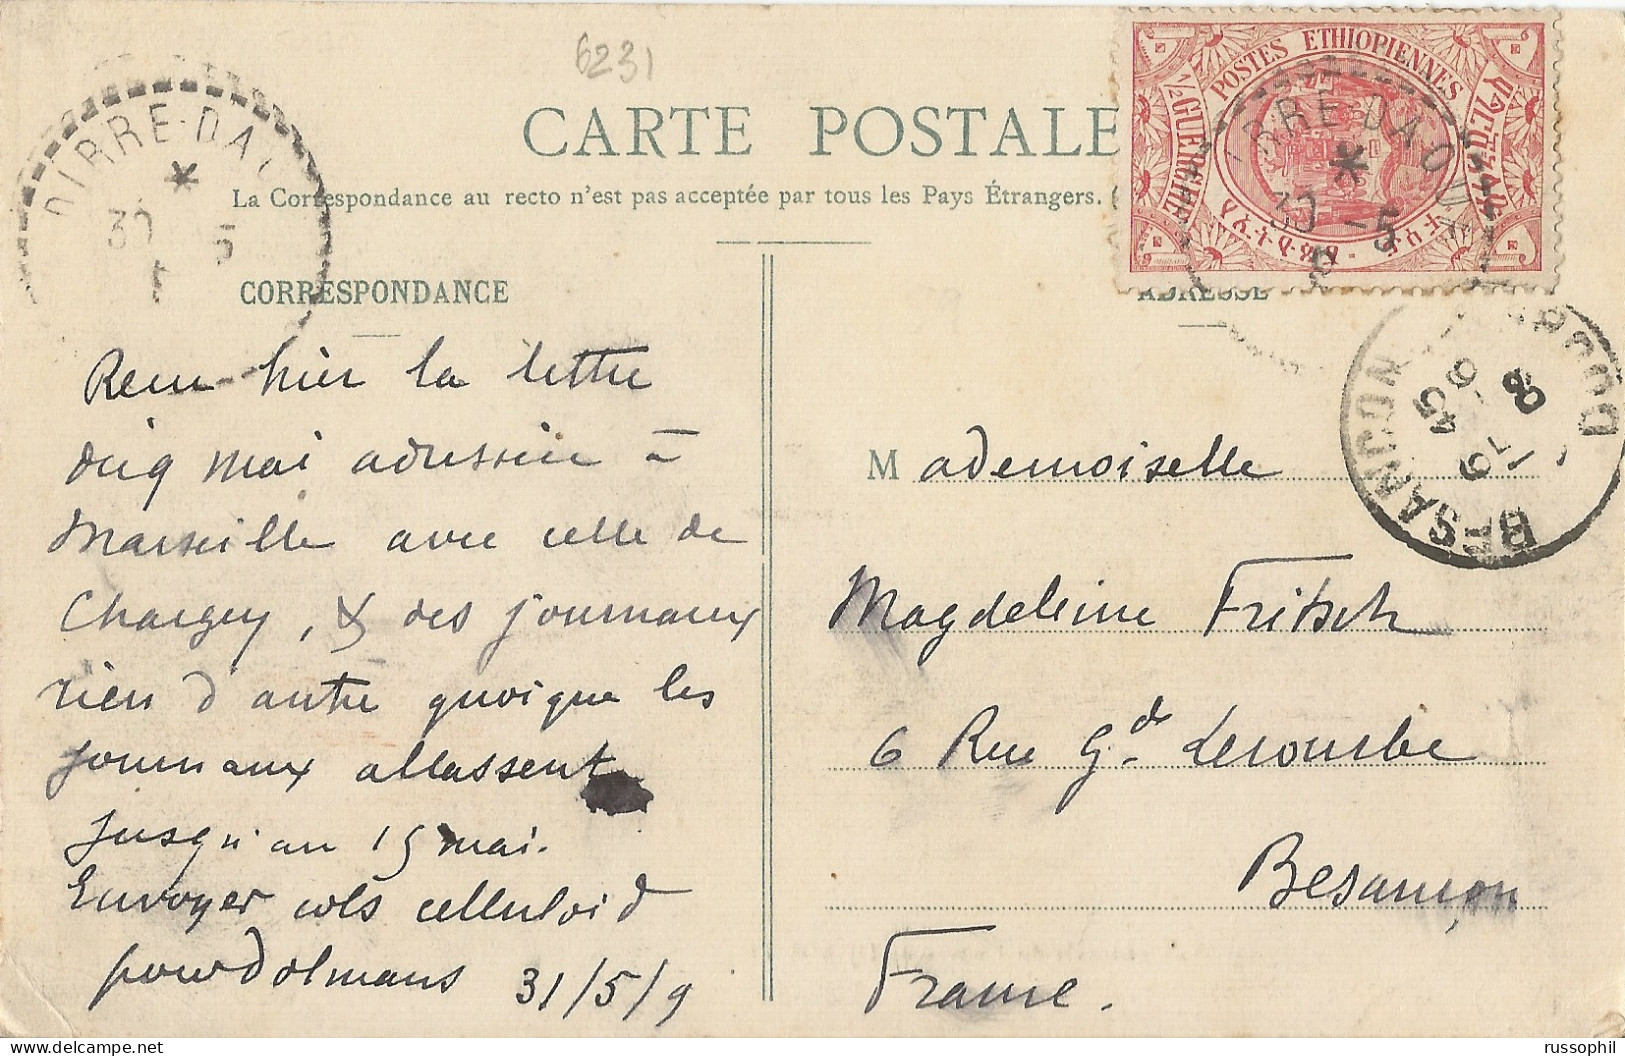 6231
CARTE POSTALE
La Correspondance au recto n'est pas acceptée par tous les Pays Étrangers.
DIRRE-DA
30 5
POSTES ETHIOPIENNES
1/2 GUERCHE
IRRE-DAOU
30 -5
CORRESPONDANCE
ADRESSE
BESANCON
DOUBS
Reçu hier la lettre
cinq mai adressée à
Marseille avec celle de
Chargey, & des journaux
rien d'autre quoique les
journaux allassent
jusqu'au 15 mai.
Envoyer cols celluloid
pour Dolmans 31/5/9
Mademoiselle
Magdeleine Fritsch
6 Rue Gd. Lecourbe
Besançon
France.
russophil